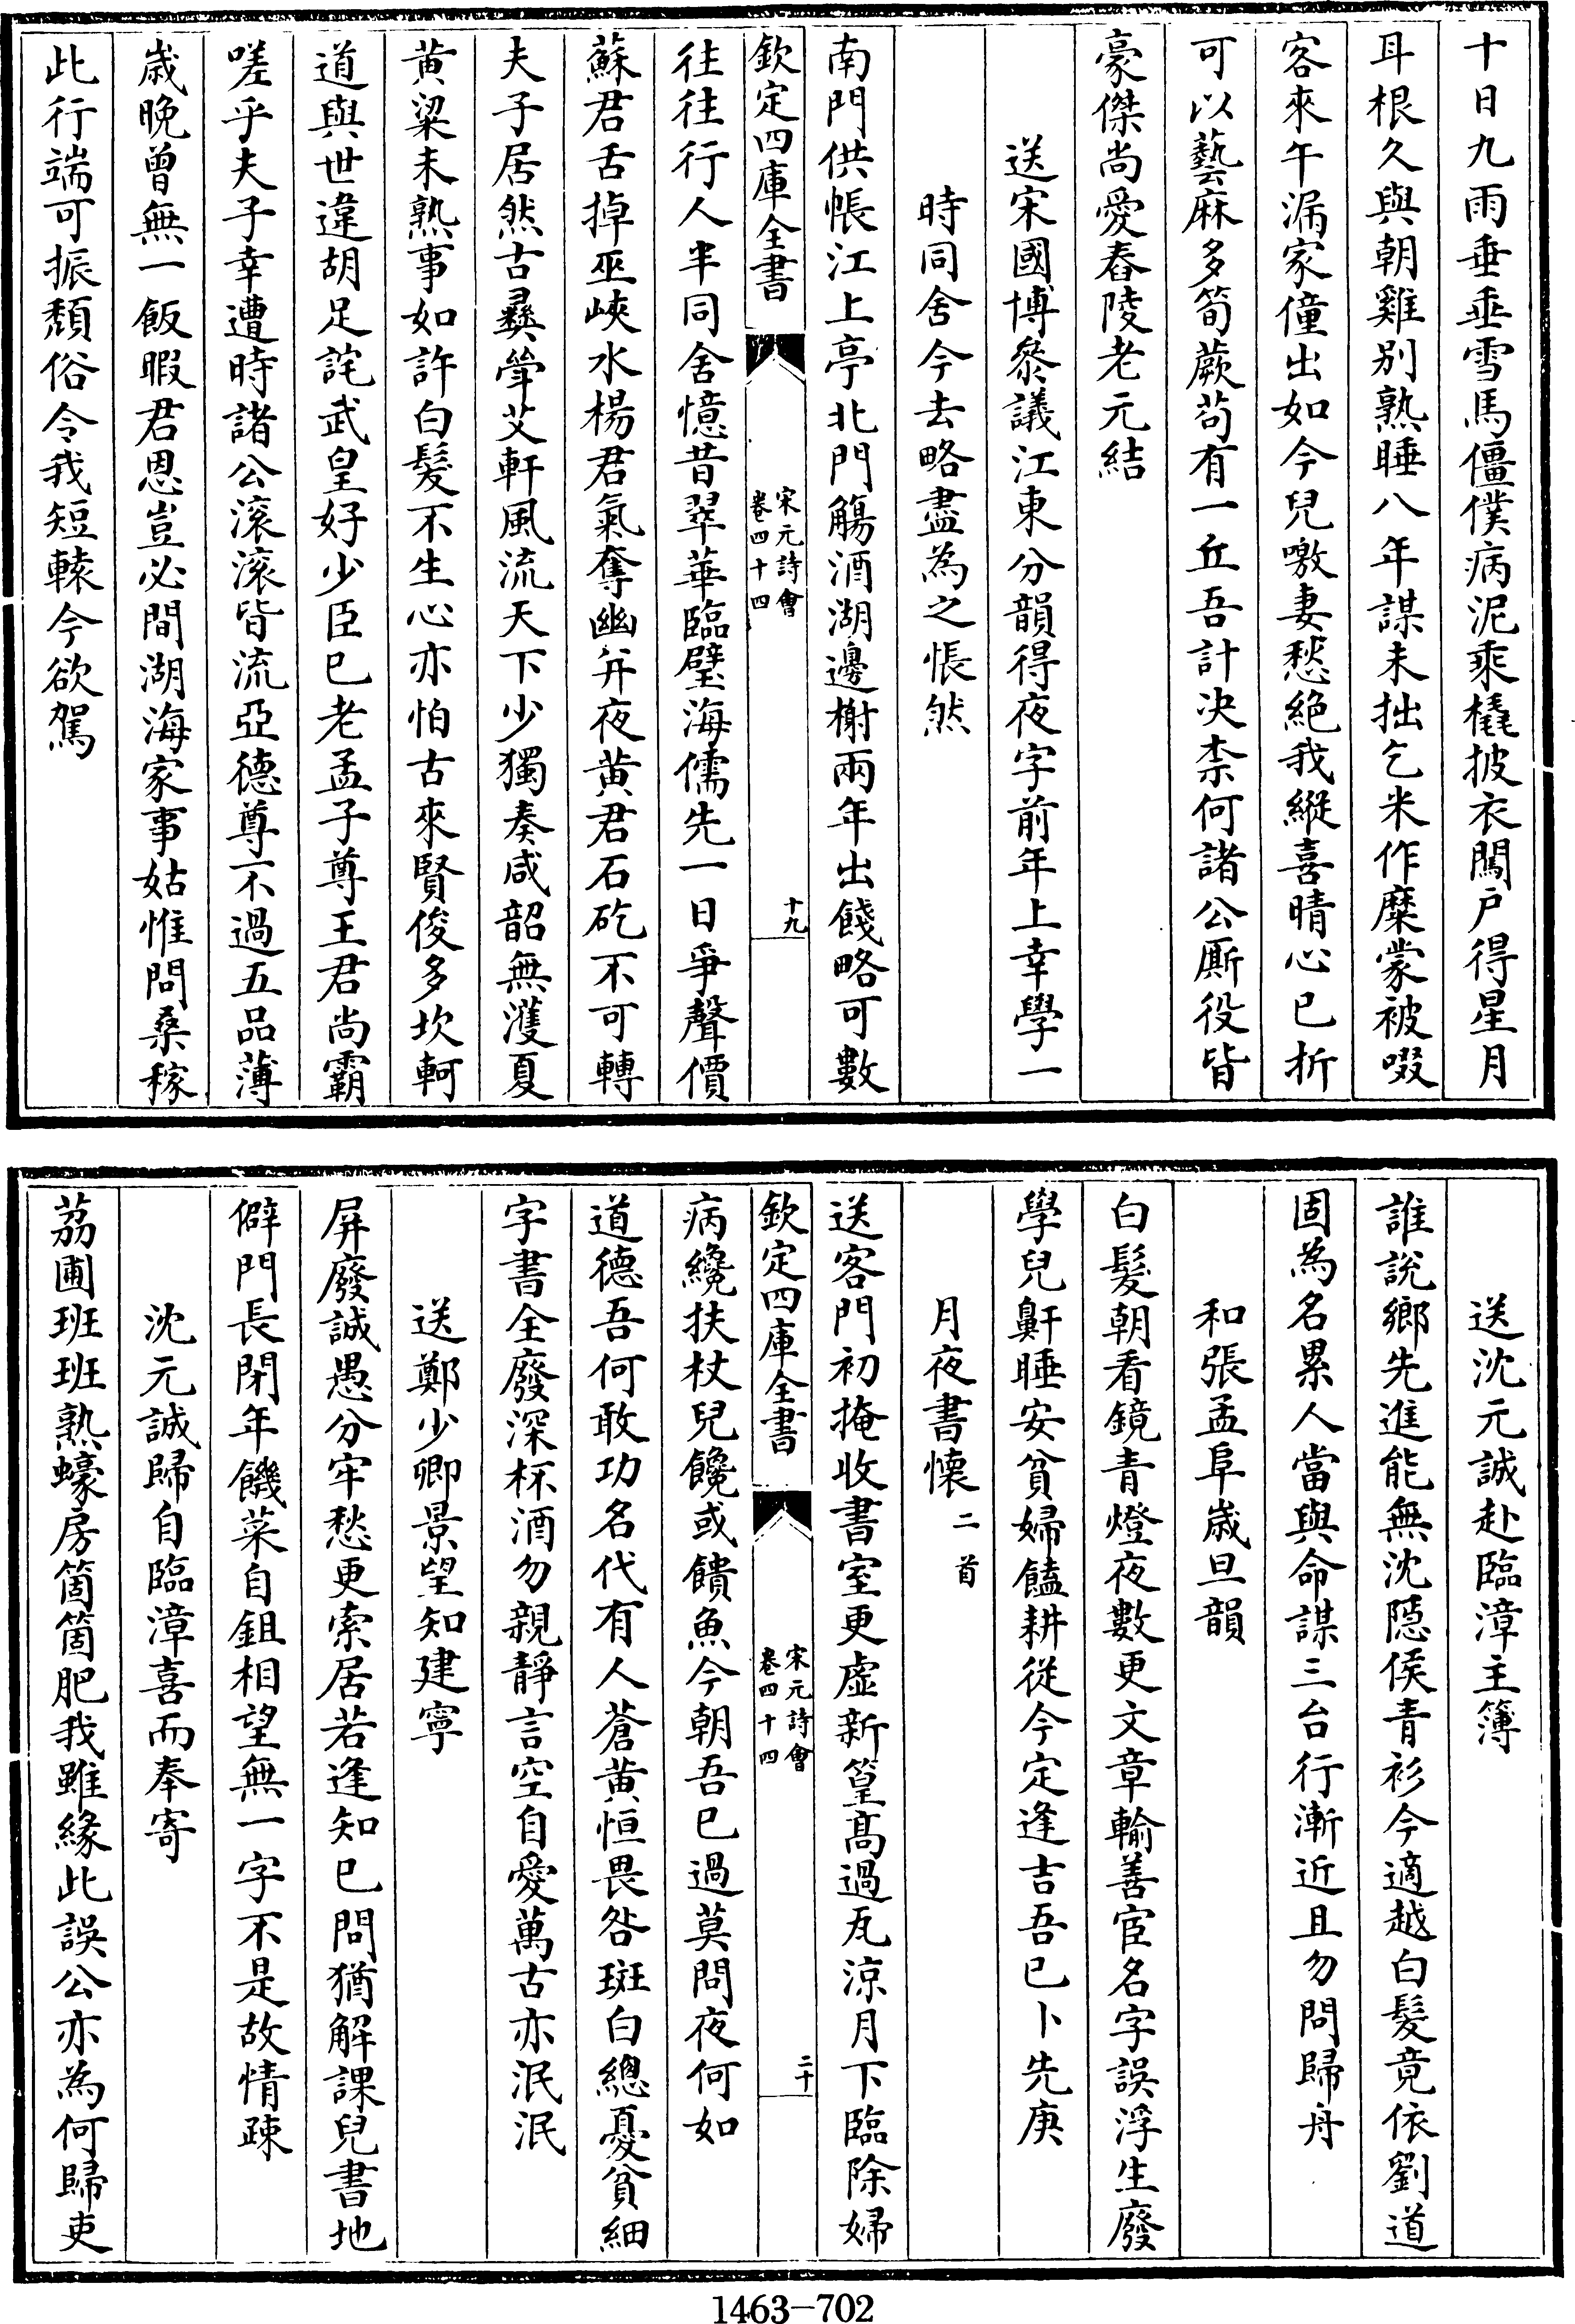 十日九雨垂垂雪馬僵僕病泥乘橇披衣闖戸得星月
耳根久與朝雞别熟睡八年謀未拙乞米作糜蒙被啜
客來午漏家僮出如今兒噭妻愁絕我縱喜晴心已折
可以藝麻多筍蕨苟有一丘吾計决柰何諸公厮役皆
豪傑尚愛舂陵老元結
送宋國博叅議江東分韻得夜字前年上幸學一
時同舍今去略盡為之悵然
南門供帳江上亭北門觴酒湖邊榭兩年出餞略可數
欽定四庫全書
宋元詩會
卷四十四
十九
往往行人半同舍憶昔翠華臨璧海儒先一日爭聲價
蘇君舌掉巫峽水楊君氣奪幽并夜黄君石矻不可轉
夫子居然古彝斝艾軒風流天下少獨奏咸韶無濩夏
黄粱未熟事如許白髮不生心亦怕古來賢俊多坎軻
道與世違胡足詫武皇好少臣已老孟子尊王君尚霸
嗟乎夫子幸遭時諸公滚滚皆流亞德尊不過五品薄
歲晚曾無一飯暇君恩豈必間湖海家事姑惟問桑稼
此行端可振頽俗令我短轅今欲駕
送沈元誠赴臨漳主簿
誰說鄉先進能無沈隱侯青衫今適越白髮竟依劉道
固為名累人當與命謀三台行漸近且勿問歸舟
和張孟阜歲旦韻
白髮朝看鏡青燈夜數更文章輸善宦名字誤浮生廢
學兒鼾睡安貧婦饁耕從今定逢吉吾已卜先庚
月夜書懷二首
送客門初掩收書室更虛新篁髙過瓦涼月下臨除婦
欽定四庫全書
宋元詩會
卷四十四
二十
病纔扶杖兒饞或饋魚今朝吾已過莫問夜何如
道德吾何敢功名代有人蒼黄恒畏咎斑白總憂貧細
字書全廢深杯酒勿親靜言空自愛萬古亦泯泯
送鄭少卿景望知建寧
屏廢誠愚分牢愁更索居若逢知已問猶解課兒書地
僻門長閉年饑菜自鉏相望無一字不是故情疎
沈元誠歸自臨漳喜而奉寄
荔圃班班熟蠔房箇箇肥我雖緣此誤公亦為何歸吏
1463—702